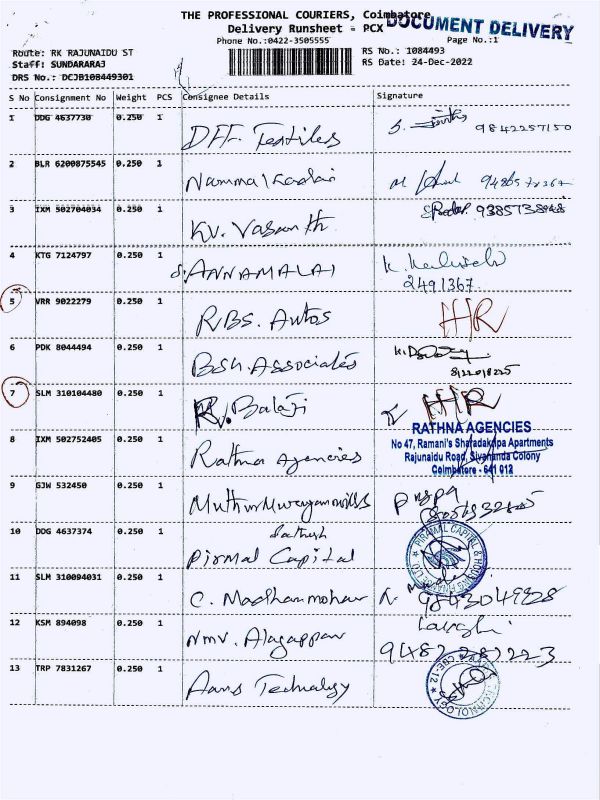 THE PROFESSIONAL COURIERS, Coimbatore
DOCUMENT DELIVERY
Delivery Runsheet - PCX
Phone No.:0422-3505555
Page No.:1
Route: RK RAJUNAIDU ST
RS No.: 1084493
Staff: SUNDARARAJ
RS Date: 24-Dec-2022
DRS No.: DCJB108449301
S No Consignment No Weight PCS Consignee Details Signature
1 DDG 4637730 0.250 1 Textiles 9842257150
2 BLR 6200875545 0.250 1
3 IXM 502704034 0.250 1 KV. Vasanth
4 KTG 7124797 0.250 1 ANNAMALAI
2491367
5 VRR 9022279 0.250 1 RBS. Autos HR
6 PDK 8044494 0.250 1 Associates
7 SLM 310104480 0.250 1 Balaji HR
RATHNA AGENCIES
8 IXM 502752405 0.250 1 Rathna Agencies
No 47, Ramani's Sharadakripa Apartments
Rajunaidu Road, Sivananda Colony
Coimbatore - 641 012
9 GJW 532450 0.250 1
10 DDG 4637374 0.250 1 Sathish
Pirmal Capital
PIRAMAL CAPITAL & HOUSING FINANCE LTD
11 SLM 310094031 0.250 1 C. Madhanmohan 9843049828
12 KSM 894098 0.250 1 NMV. Alagappan
13 TRP 7831267 0.250 1 Aans Technology
CBE-12